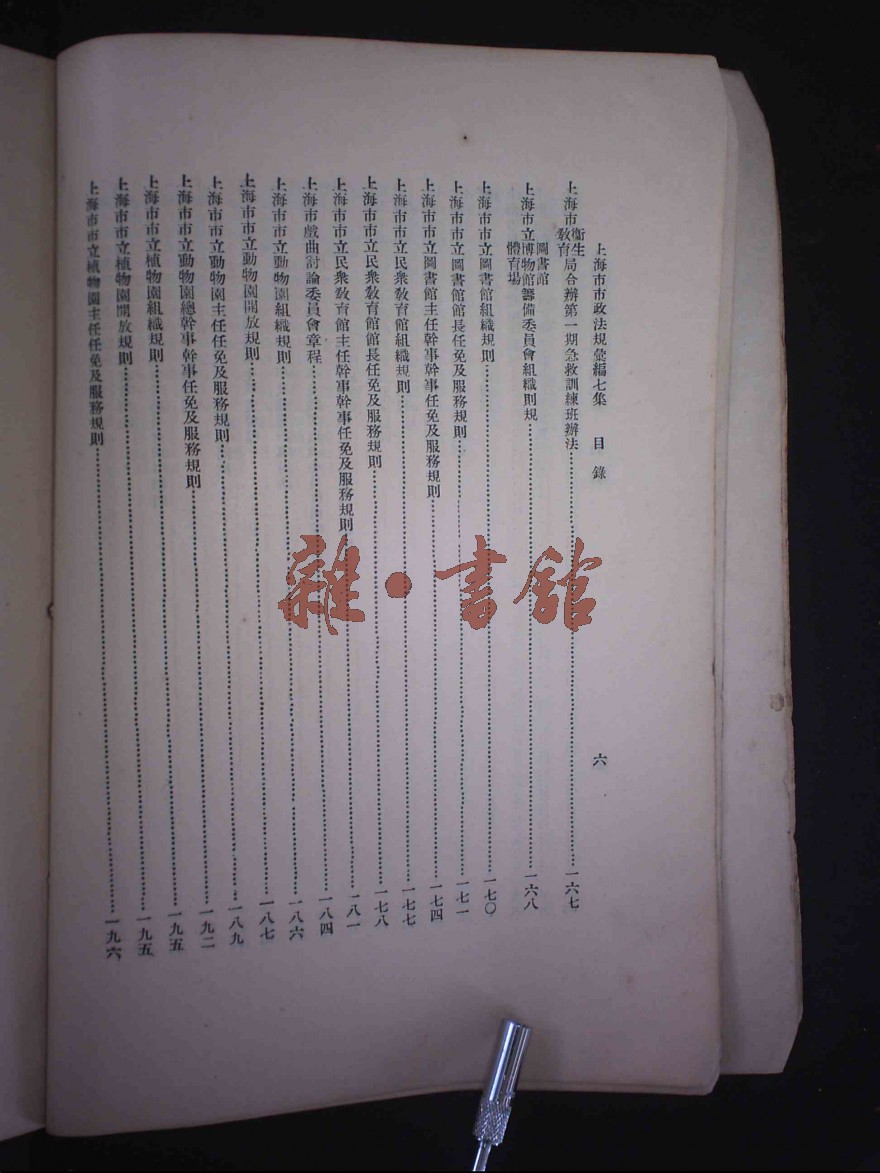 上海市市政法規彙編七集　目錄　六
上海市衛生教育局合辦第一期急救訓練班辦法…一六七
上海市立圖書館博物館體育場籌備委員會組織則規…一六八
上海市市立圖書館組織規則…一七〇
上海市市立圖書館館長任免及服務規則…一七一
上海市市立圖書館主任幹事幹事任免及服務規則…一七四
上海市市立民衆教育館組織規則…一七七
上海市市立民衆教育館館長任免及服務規則…一七八
上海市市立民衆教育館主任幹事幹事任免及服務規則…一八一
上海市戲曲討論委員會章程…一八四
上海市市立動物園組織規則…一八六
上海市市立動物園開放規則…一八七
上海市市立動物園主任任免及服務規則…一八九
上海市市立動物園總幹事幹事任免及服務規則…一九二
上海市市立植物園組織規則…一九五
上海市市立植物園開放規則…一九五
上海市市立植物園主任任免及服務規則…一九六
雜·書館